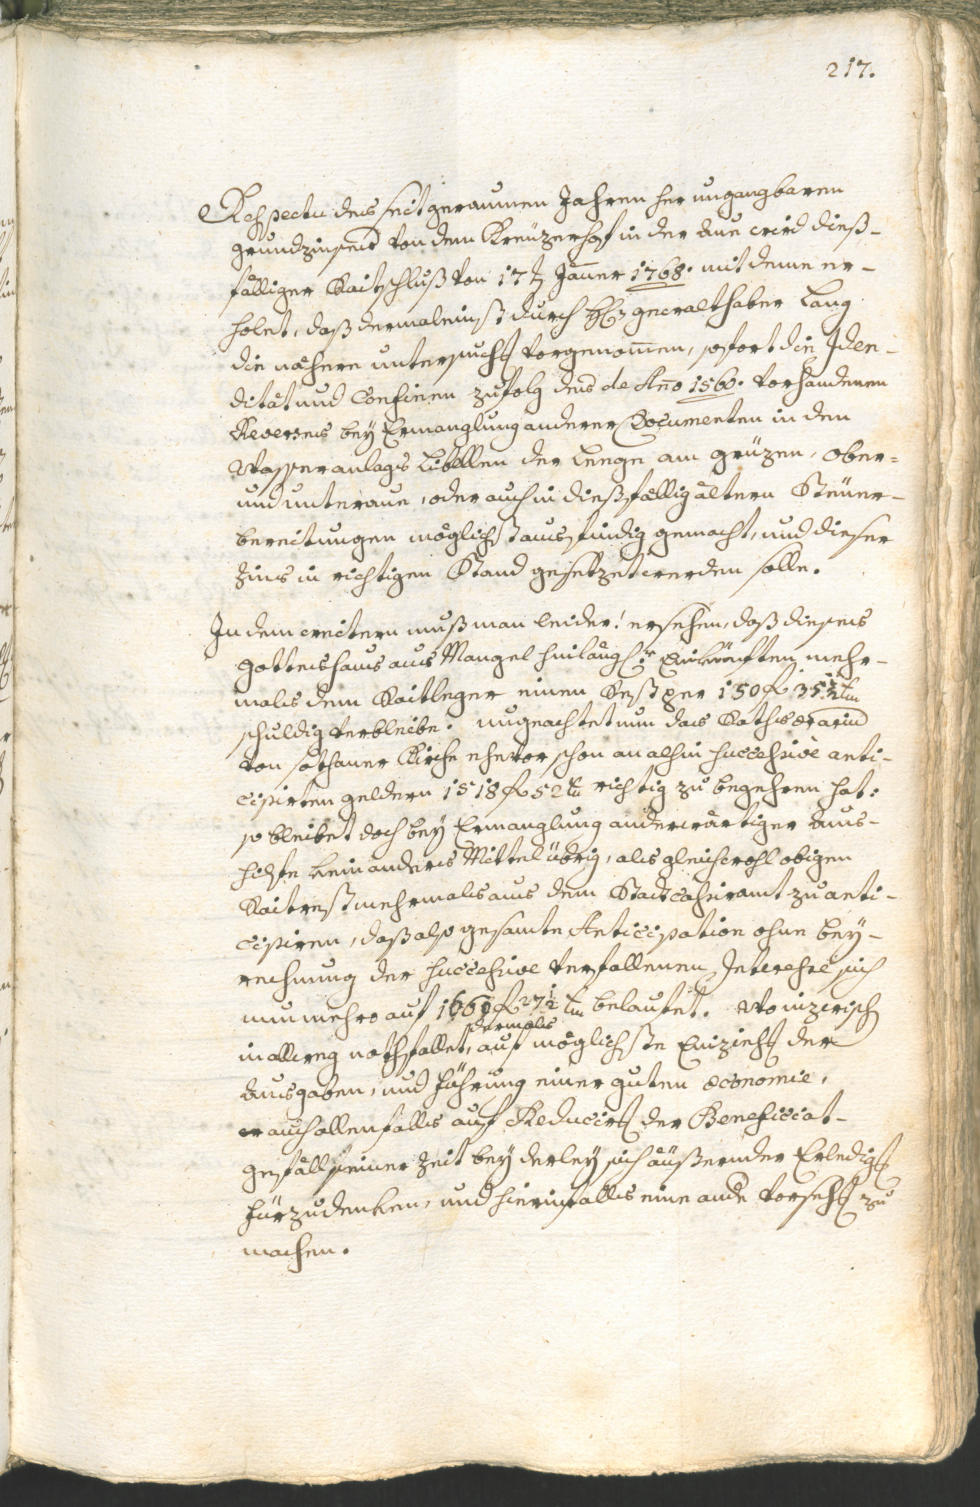 217.
Respectu des seit geraumen Jahren her ungangbaren
grundzinses von dem Kreüzerhof in der Aue wird dieß-
fälliger Raitschluß von 17t Jäner 1768. mit deme er-
holet, daß dermaleinst durch H: gwalthaber Lang
die nähere untersuchg vorgenom̅en, sofort die Iden-
ditæt und Confinen zufolg des de A̅no 1560. vorhandenen
Reverses bey Ermanglung anderer Documenten in den
Wasseranlags Libellen der Leege am grüzen, Ober-
und unteraue, oder auch in dießfällig ältern Steüer-
bereitungen möglichst ausfündig gemacht, und dieser
Zins in richtigen Stand gesetzet werden solle.
In dem weitern muß man leider! ersehen, daß dieses
Gotteshaus aus Mangel hinlängl:r Einkünften mehr-
mals dem Raitleger einen Rest per 150 f 35½ xr
schuldig verbleibe. ungeachtet nun das Raths ærarium
von sothaner Kirche ehevor schon an alhin successive anti-
cipirten geldern 1518 f 52 xr richtig zu begehren hat:
so bleibet doch bey Ermanglung anderwärtiger Aus-
hilfe kein anders Mittel übrig, als gleichwohl obigen
Raitrest mehrmals aus dem Stadtcassieramt zu anti-
cipiren, daß also gesamte Anticipation ohne bey-
rechnung der successive verfallenen Interesse sich
nunmehro auf 1669 f 27½ xr belaufet. Woinzwisch
in allweg nothfallet, dermals auf möglichste Einziehg der
Ausgaben, und Führung einer guten œconomie,
er auch allenfalls auf Reducirg der Beneficiat-
gefäll seiner Zeit bey derley sich äußernder Erledigg
fürzudenken, und hierinfalls eine ande Vorsehg zu
machen.